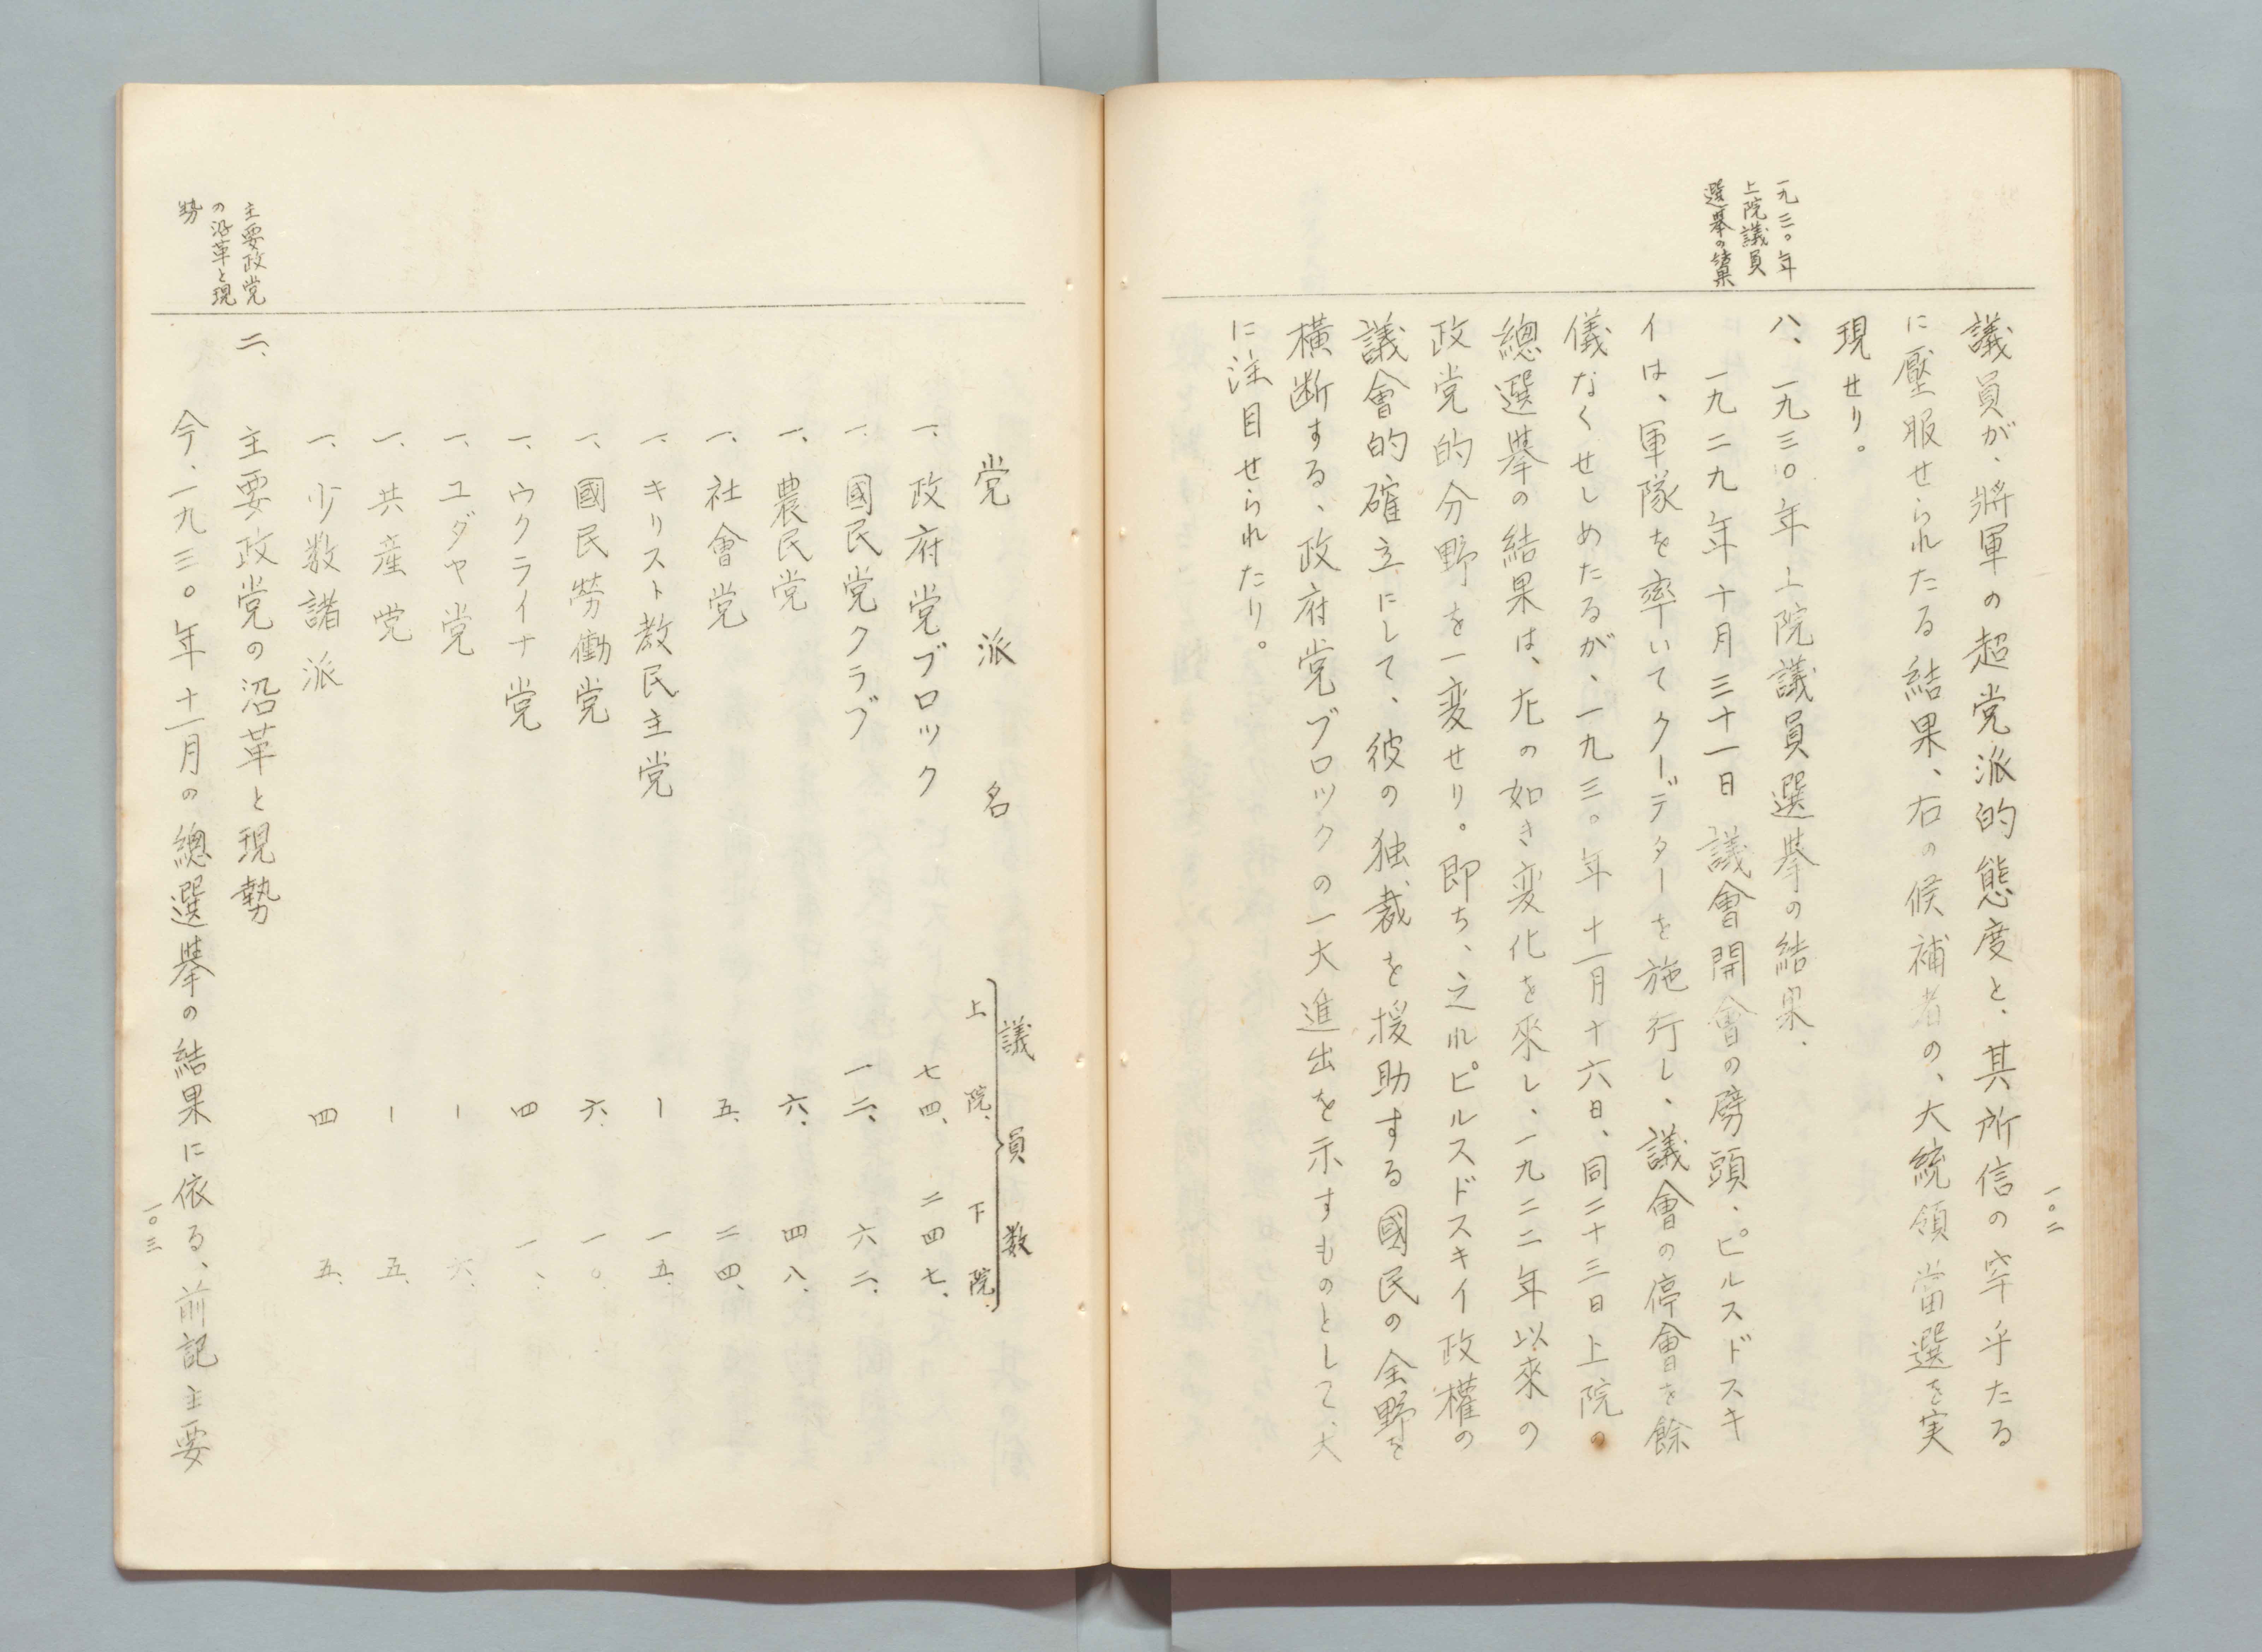 一九三〇年
上院議員
選挙の結果
議員が、將軍の超党派的態度と、其所信の牢乎たる
に壓服せられたる結果、右の候補者の、大統領當選を実
現せり。
八、一九三〇年上院議員選挙の結果、
一九二九年十月三十一日議會開會の劈頭、ピルスドスキ
イは、軍隊を率いてクーデターを施行し、議會の停會を餘
儀なくせしめたるが、一九三〇年十一月十六日、同二十三日上院の
總選挙の結果は、左の如き変化を來し、一九二二年以來の
政党的分野を一変せり。即ち、之れピルスドスキイ政權の
議會的確立にして、彼の独裁を援助する國民の全野を
横断する、政府党ブロックの一大進出を示すものとして、大
に注目せられたり。
一〇二
党派名 議員数
上院、 下院、
一、政府党ブロック 七四、 二四七、
一、國民党クラブ 一二、 六二、
一、農民党 六、 四八、
一、社會党 五、 二四、
一、キリスト教民主党 ー 一五、
一、國民勞働党 六、 一〇、
一、ウクライナ党 四 一、
一、ユダヤ党 ー 六、
一、共産党 ー 五、
一、少数諸派 四 五、
主要政党
の沿革と現
勢
二、主要政党の沿革と現勢
今、一九三〇年十一月の總選挙の結果に依る、前記主要
一〇三